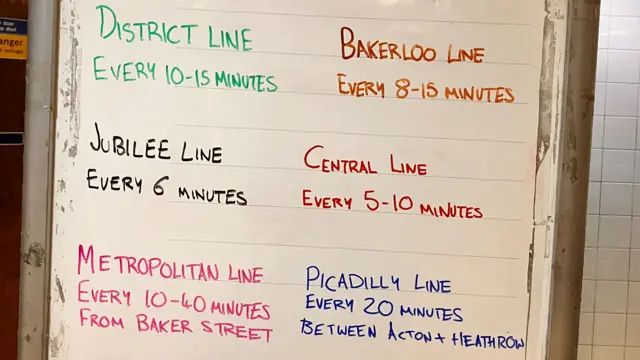 DISTRICT LINE
EVERY 10-15 MINUTES
BAKERLOO LINE
EVERY 8-15 MINUTES
JUBILEE LINE
EVERY 6 MINUTES
CENTRAL LINE
EVERY 5-10 MINUTES
METROPOLITAN LINE
EVERY 10-40 MINUTES
FROM BAKER STREET
PICADILLY LINE
EVERY 20 MINUTES
BETWEEN ACTON + HEATHROW
anger